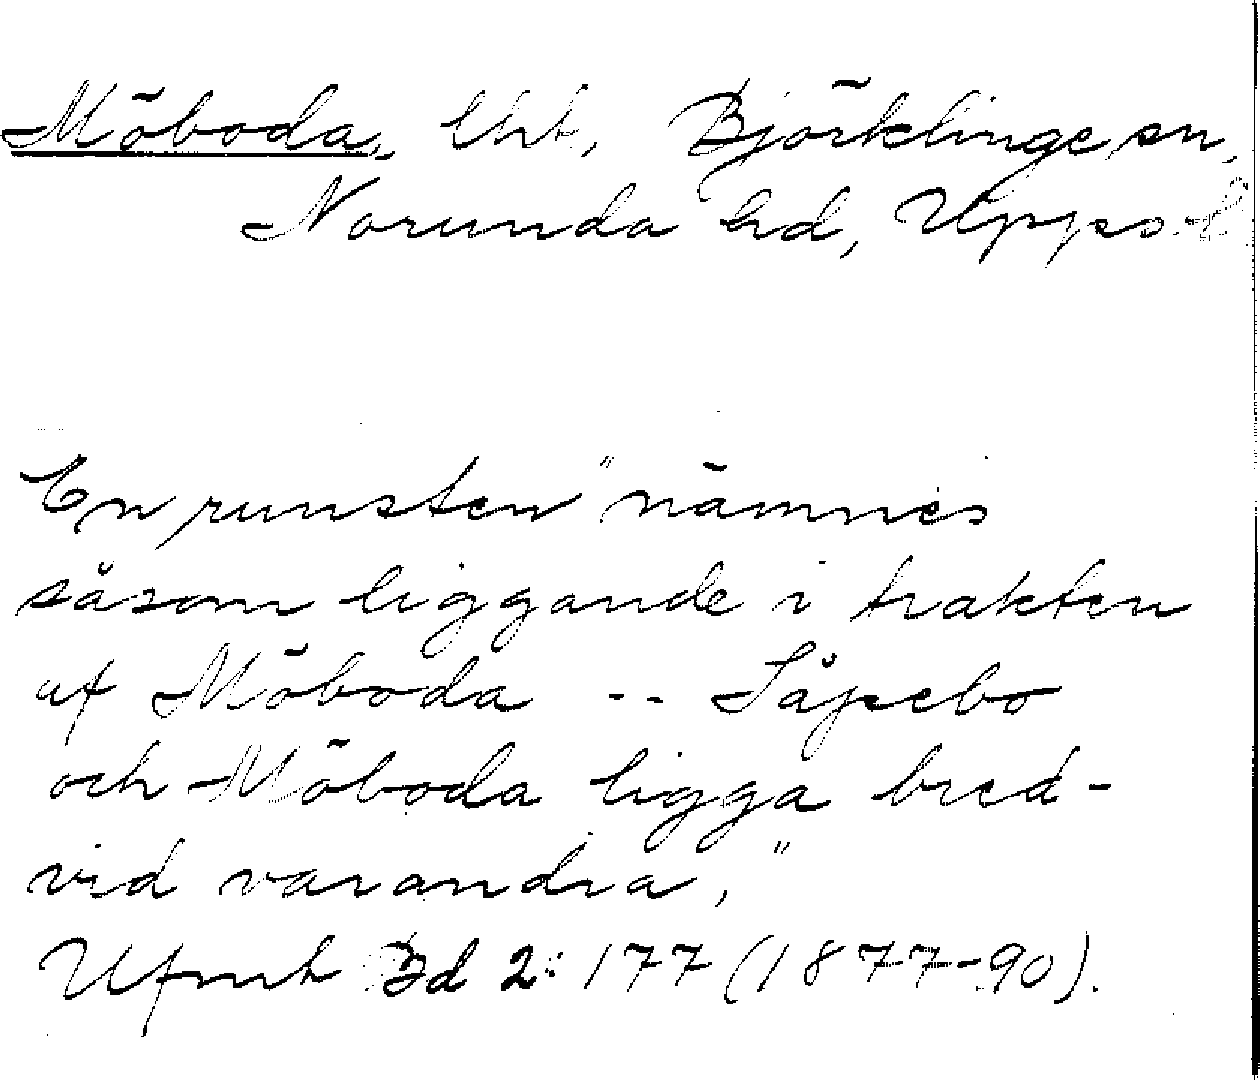 Möboda, lht, Björklinge sn,
Norunda hd, Upps. l.
En runsten "nämnes
såsom liggande i trakten
af Möboda -- Såjsebo
och Möboda ligga bred-
vid varandra,"
Ufmt Bd 2: 177 (1877-90).